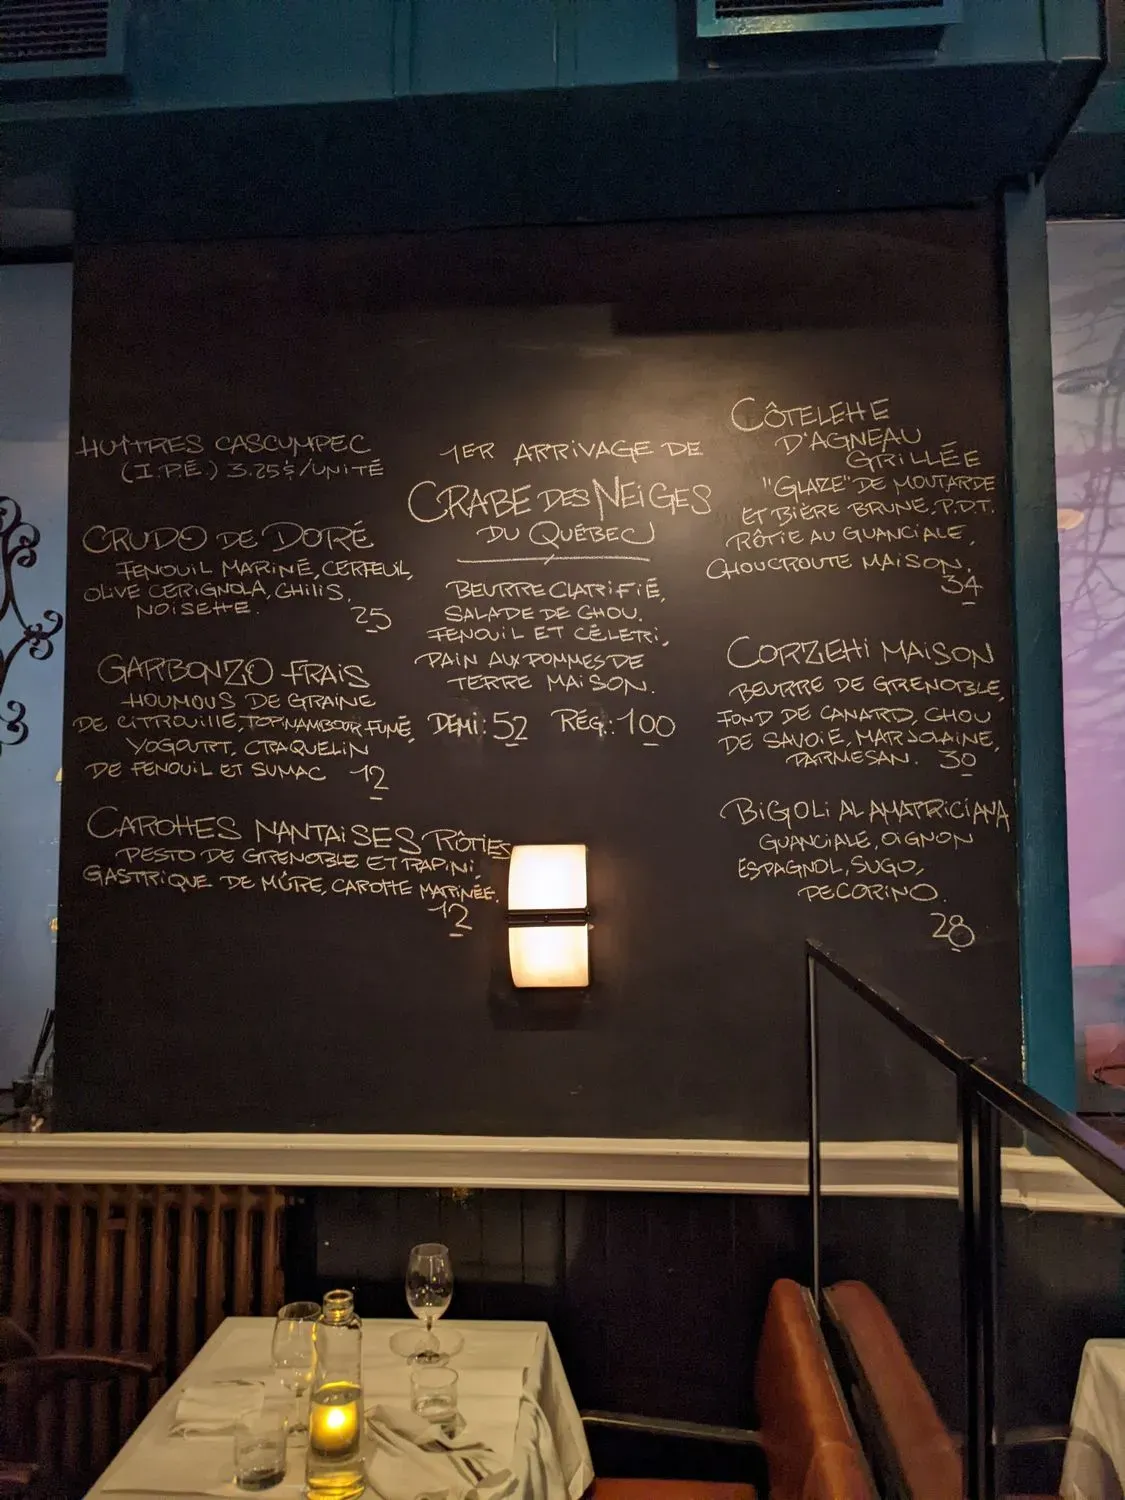 HUÎTRES CASCUMPEC
(I.P.É.) 3.25$/UNITÉ
CRUDO DE DORÉ
FENOUIL MARINÉ, CERFEUIL,
OLIVE CERIGNOLA, CHILIS,
NOISETTE.
25
GARBONZO FRAIS
HOUMOUS DE GRAINE
DE CITROUILLE, TOPINAMBOUR FUMÉ,
YOGOURT, CRAQUELIN
DE FENOUIL ET SUMAC 12
CAROTTES NANTAISES RÔTIES
PESTO DE GRENOBLE ET RAPINI,
GASTRIQUE DE MÛRE, CAROTTE MARINÉE.
12
1ER ARRIVAGE DE
CRABE DES NEIGES
DU QUÉBEC
BEURRE CLARIFIÉ,
SALADE DE CHOU,
FENOUIL ET CÉLERI,
PAIN AUX POMMES DE
TERRE MAISON.
DEMI: 52 RÉG.: 100
CÔTELETTE
D'AGNEAU
GRILLÉE
"GLAZE" DE MOUTARDE
ET BIÈRE BRUNE, P.D.T.
RÔTIE AU GUANCIALE,
CHOUCROUTE MAISON.
34
CORZETTI MAISON
BEURRE DE GRENOBLE,
FOND DE CANARD, CHOU
DE SAVOIE, MARJOLAINE,
PARMESAN. 30
BIGOLI AL AMATRICIANA
GUANCIALE, OIGNON
ESPAGNOL, SUGO,
PECORINO.
28